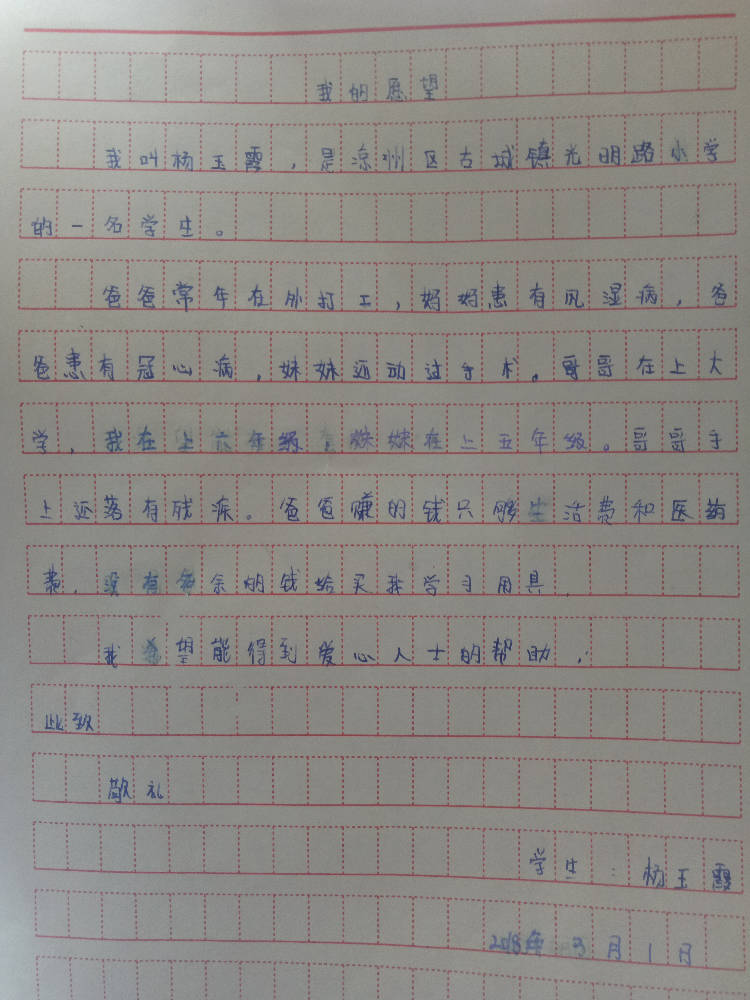 我的愿望
我叫杨玉霞，是凉州区古城镇光明路小学
的一名学生。
爸爸常年在外打工，妈妈患有风湿病，爸
爸患有冠心病，妹妹还动过手术。哥哥在上大
学，我在上六年级，妹妹在上五年级。哥哥手
上还落有残疾。爸爸赚的钱只够生活费和医药
费，没有多余的钱给买我学习用具，
我希望能得到爱心人士的帮助，
此致
敬礼
学生：杨玉霞
2018年3月1日